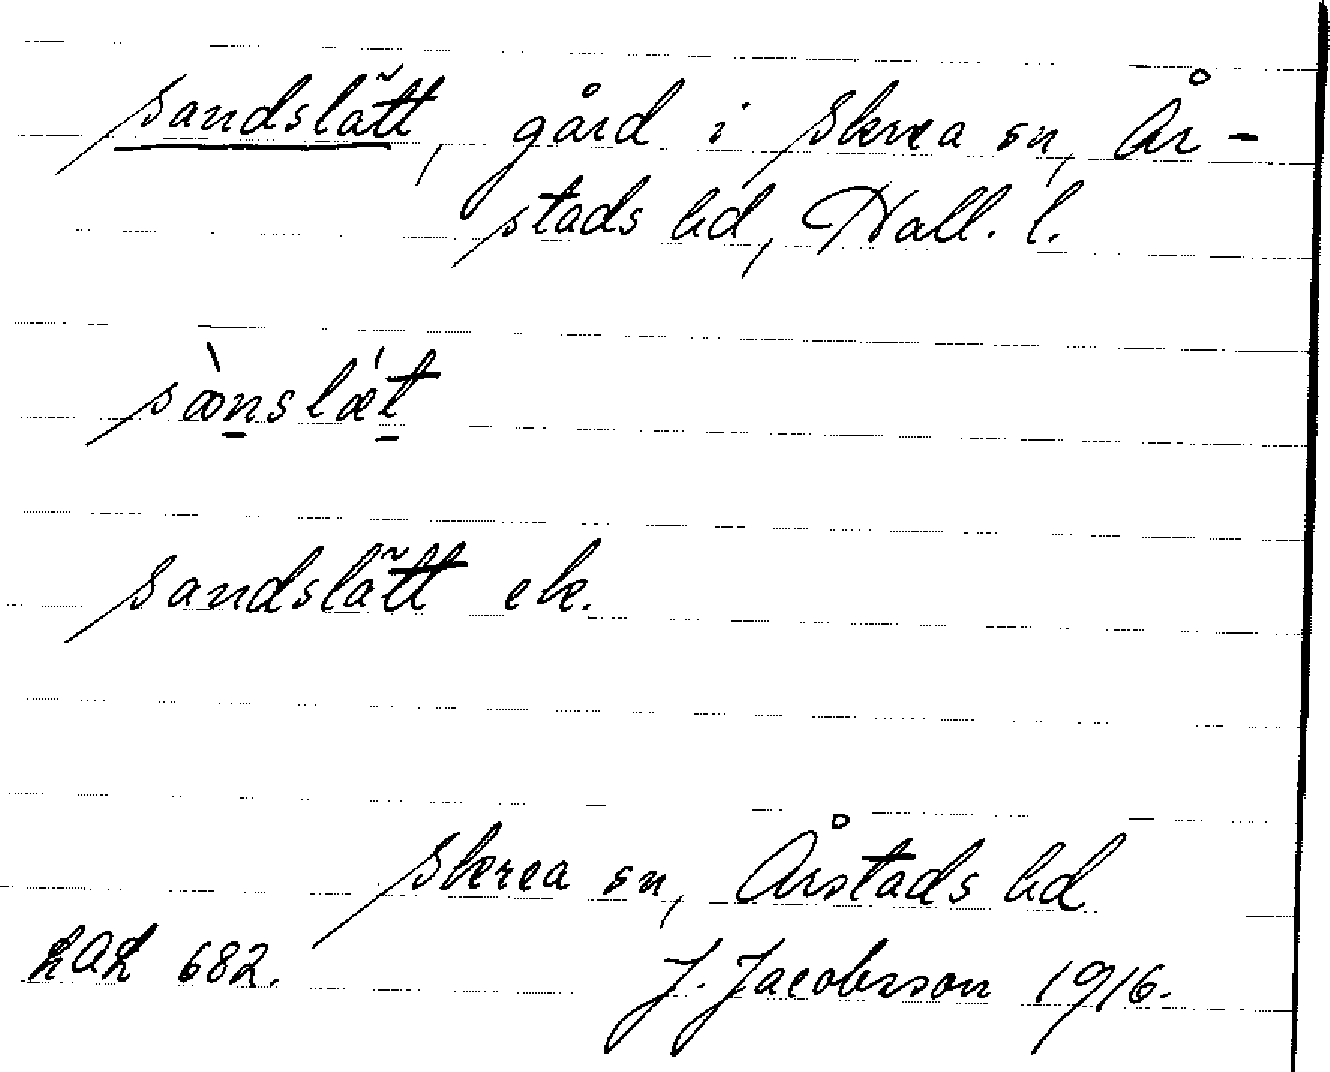 Sandslätt, gård i Skrea sn, År-
stads hd, Hall. l.
sànslǽt
Sandslätt ek.
Skrea sn, Årstads hd
682. J. Jacobsson 1916.